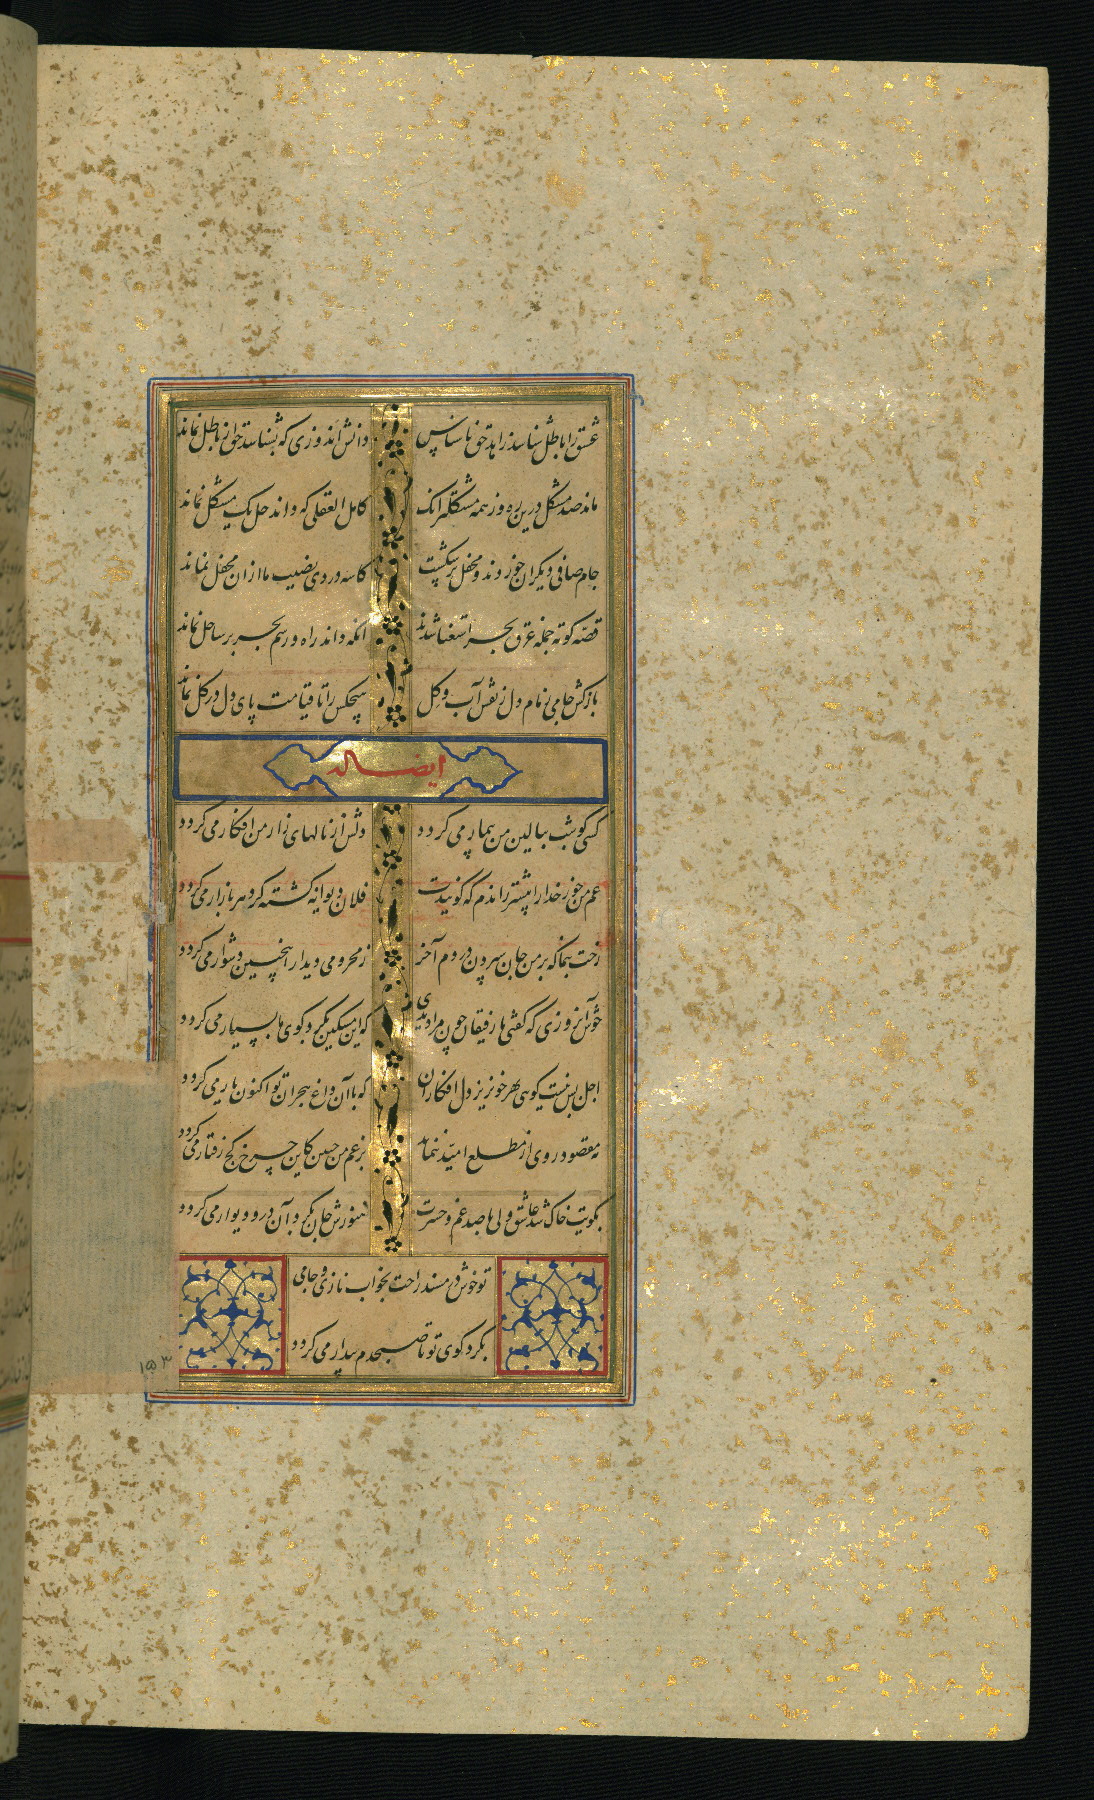 عشق را باطل شناسد زاهد حق ناشناس دانش اندوزی که بشناسد حق از باطل نماند
ماند صد مشکل درین ره وز همه مشکلتر آنک کامل العقلی که داند حل یک مشکل نماند
جام صافی دیگران خوردند و محفل برشکست کاسه دردی نصیب ما ازان محفل نماند
قصه کوته جمله غرق بحر استغنا شدند آنکه داند راه و رسم بحر بر ساحل نماند
بازکش جامی زمام دل ز نقش آب و گل هیچکس را تا قیامت پای دل در گل نماند
ایضا له
کسی کو شب ببالین من بیمار می گردد دلش از نالهای زار من افکار می گردد
غم من خور خدا را پیشتر زاندم که گویندت فلان دیوانه گشته گرد هر بازار می گردد
رخت بنما که بر من جان سپردن در دم آخر ز محرومی دیدار اینچنین دشوار می گردد
خوش آن روزی که گفتی با رفیقان چون مرا دیدی که این مسکین بگرد کوی ما بسیار می گردد
اجل بس نیست گویی بهر خونریز دل افکاران که با آن داغ هجران تو اکنون یار می گردد
مه مقصود روی از مطلع امید ننماید بزعم من چنین کاین چرخ کج رفتار می گردد
بکویت خاک شد عاشق ولی با صد غم و حسرت هنوزش جان بگرد آن در و دیوار می گردد
تو خوش در مسند راحت بخواب نازی و جامی
بگرد کوی تو تا صبحدم بیدار می گردد
۱۵۳